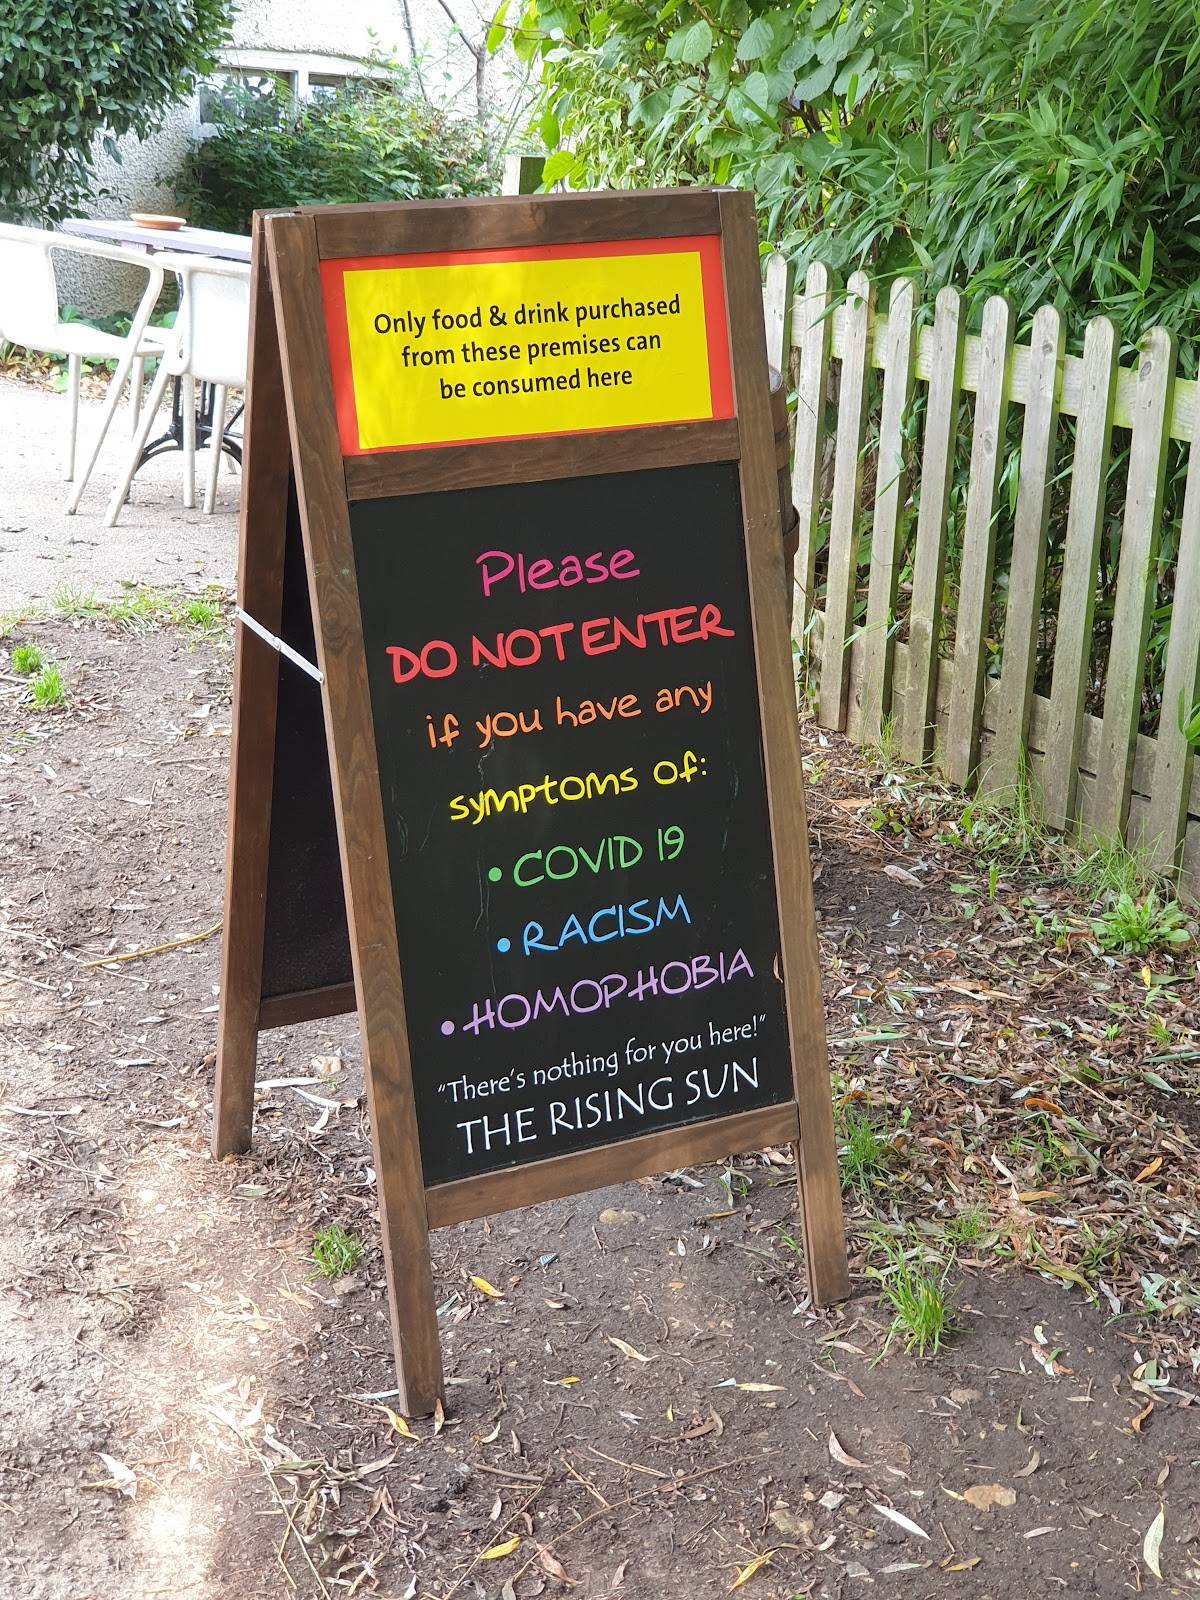 Only food & drink purchased
from these premises can
be consumed here
Please
DO NOT ENTER
if you have any
symptoms of:
• COVID 19
• RACISM
• HOMOPHOBIA
"There's nothing for you here!"
THE RISING SUN